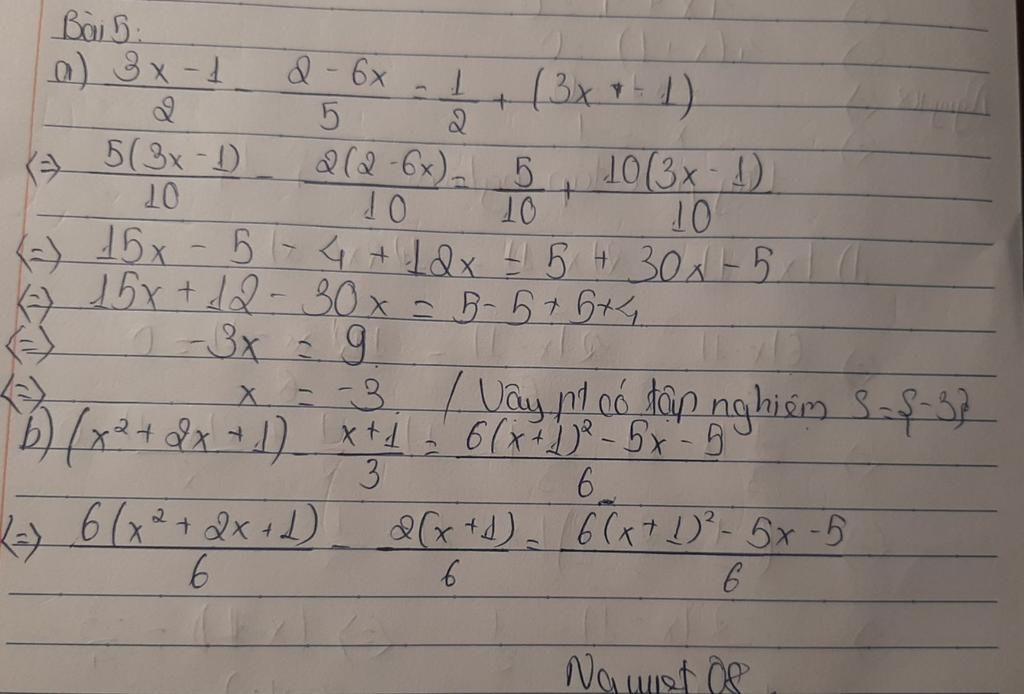 Bài 5:
a) (3x - 1)/2 - (2 - 6x)/5 = 1/2 + (3x - 1)
<=> 5(3x - 1)/10 - 2(2 - 6x)/10 = 5/10 + 10(3x - 1)/10
<=> 15x - 5 - 4 + 12x = 5 + 30x - 5
<=> 15x + 12 - 30x = 5 - 5 + 5 + 4
<=> -3x = 9
<=> x = -3 / Vậy pt có tập nghiệm S = {-3}
b) (x² + 2x + 1) - (x + 1)/3 = (6(x + 1)² - 5x - 5)/6
<=> 6(x² + 2x + 1)/6 - 2(x + 1)/6 = (6(x + 1)² - 5x - 5)/6
08